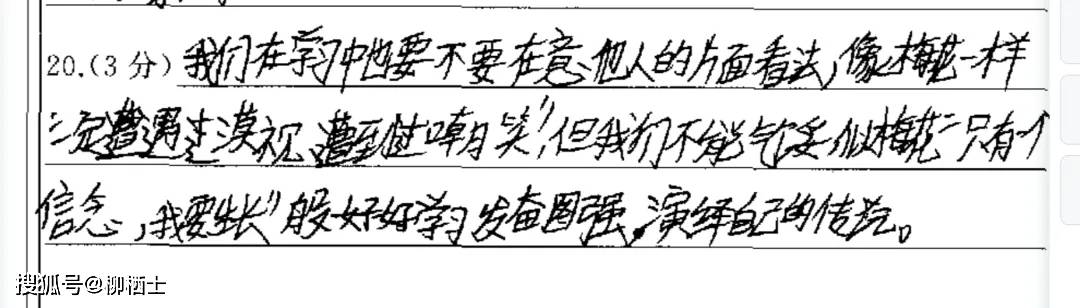 20.(3分)我们在学习中也要不要在意他人的片面看法,像梅花一样
"它遭遇过漠视,遭到过嘲笑",但我们不能气馁似梅花"只有一个
信念,我要生长"般好好学习发奋图强,演绎自己的传说。
搜狐号@柳栖士